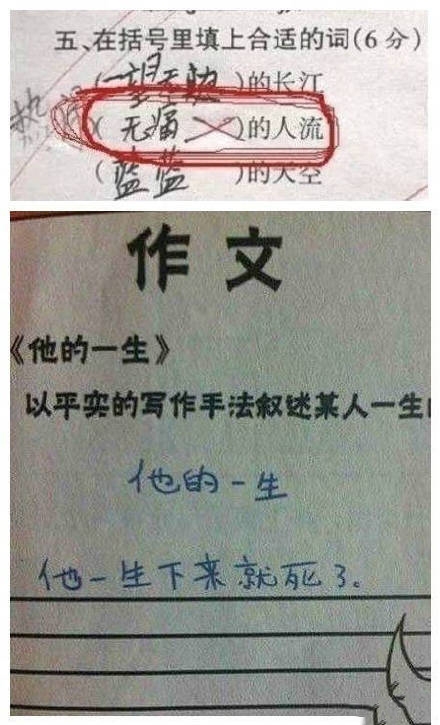 五、在括号里填上合适的词(6分)
(一望无边)的长江
(无痛)的人流
(蓝蓝)的天空
作文
《他的一生》
以平实的写作手法叙述某人一生
他的一生
他一生下来就死了。